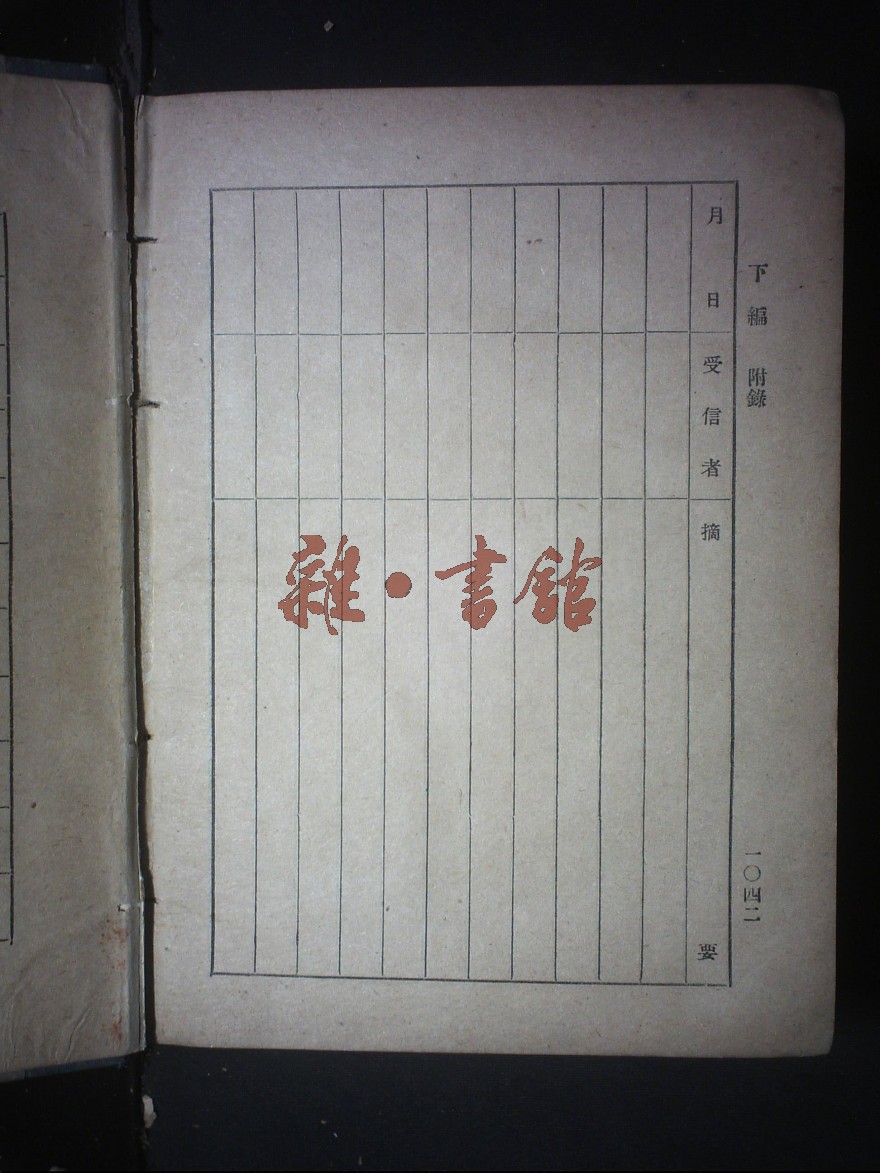 下編 附錄
一〇四二
月日
受信者
摘要
雜·書館